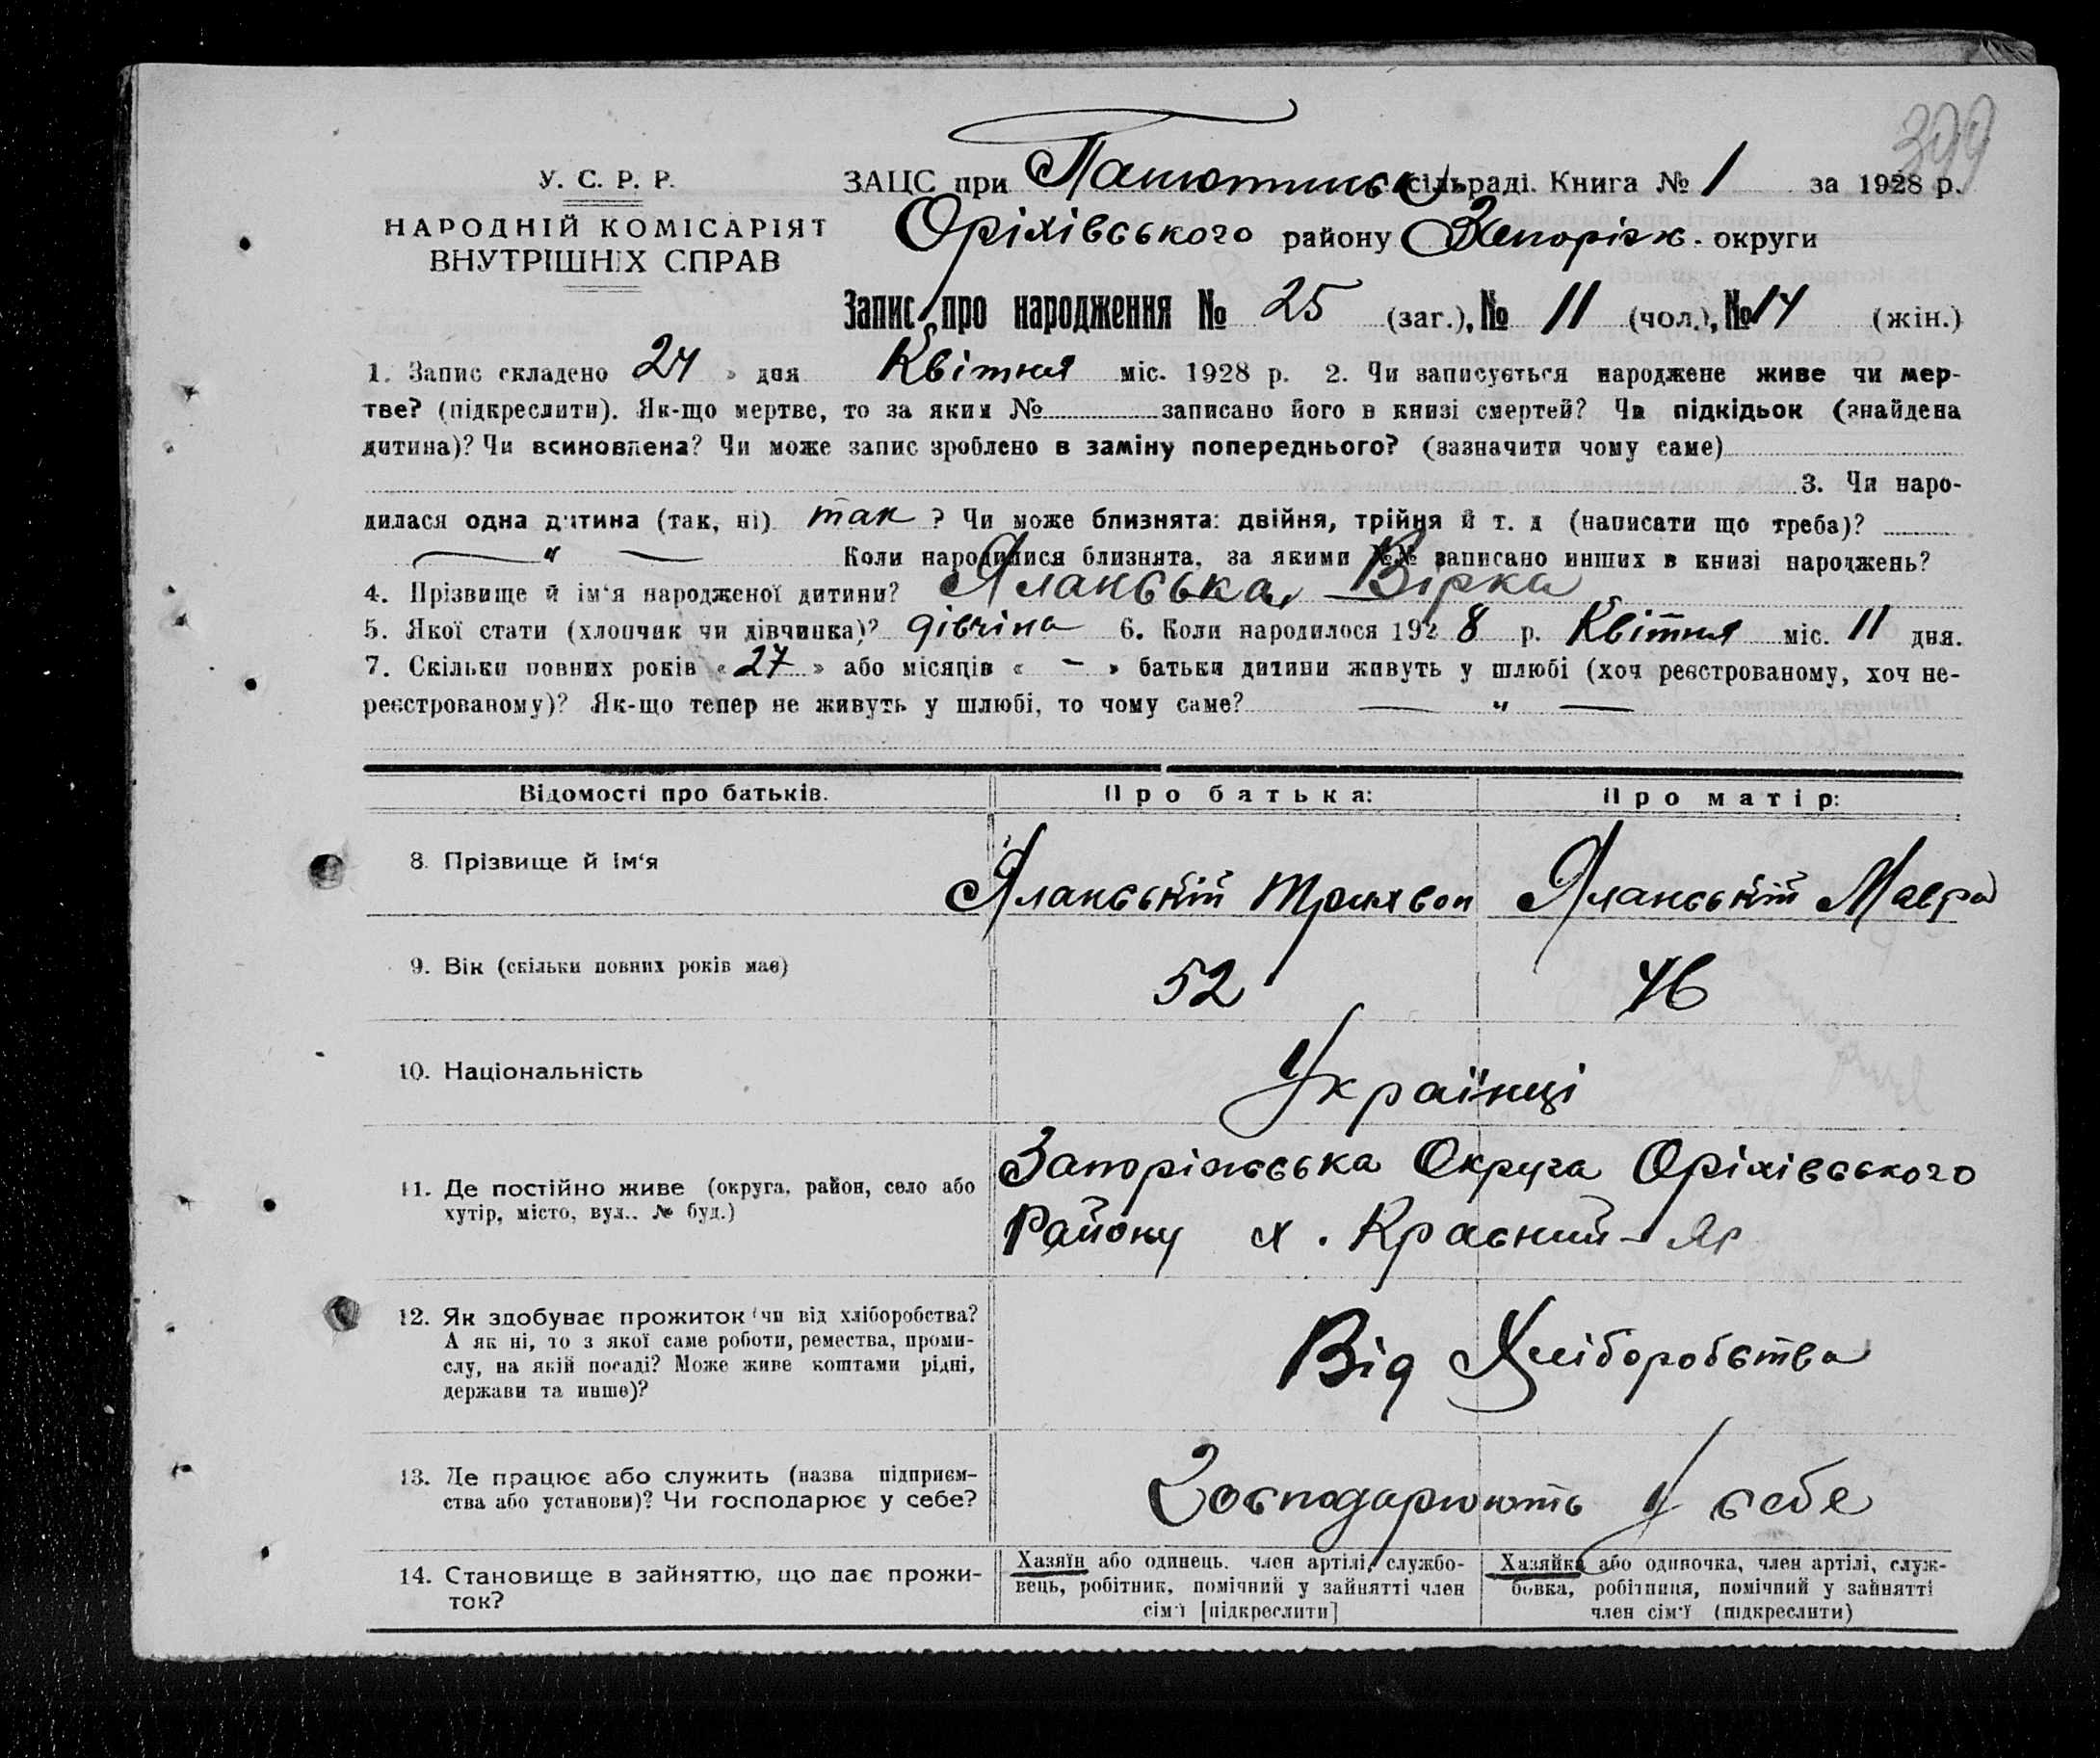 399
У. С. Р. Р.
НАРОДНІЙ КОМІСАРІЯТ
ВНУТРІШНІХ СПРАВ
ЗАЦС при Панютинськ. сільраді. Книга № 1 за 1928 р.
Оріхівського району Запоріж. округи
Запис про народження № 25 (заг.), № 11 (чол.), № 14 (жін.)
1. Запис складено 24 » дня Квітня міс. 1928 р. 2. Чи записується народжене живе чи мер-
тве? (підкреслити). Як-що мертве, то за яким № записано його в книзі смертей? Чи підкідьок (знайдена
дитина)? Чи всиновлена? Чи може запис зроблено в заміну попереднього? (зазначити чому саме)
3. Чи наро-
дилася одна дитина (так, ні) так ? Чи може близнята: двійня, трійня й т. д (написати що треба)?
— " — Коли народилися близнята, за якими №№ записано инших в книзі народжень?
4. Прізвище й ім'я народженої дитини? Яланська Вірка
5. Якої стати (хлопчик чи дівчинка)? дівчіна 6. Коли народилося 1928 р. Квітня міс. 11 дня.
7. Скільки повних років « 27 » або місяців « - » батьки дитини живуть у шлюбі (хоч реєстрованому, хоч не-
реєстрованому)? Як-що тепер не живуть у шлюбі, то чому саме? — " —
Відомості про батьків. Про батька: Про матір:
8. Прізвище й ім'я Яланській Трихвон Яланській Мавра
9. Вік (скільки повних років має) 52 46
10. Національність Українці
11. Де постійно живе (округа, район, село або
хутір, місто, вул.. № буд.)
Запоріжська Округа Оріхівського
Району х. Красний-Яр
12. Як здобуває прожиток (чи від хліборобства?
А як ні, то з якої саме роботи, ремества, проми-
слу, на якій посаді? Може живе коштами рідні,
держави та инше)?
Від Хліборобства
13. Де працює або служить (назва підприєм-
ства або установи)? Чи господарює у себе?
Господарюють У себе
14. Становище в зайняттю, що дає прожи-
ток?
Хазяїн або одинець. член артілі, службо-
вець, робітник, помічний у зайнятті член
сім'ї [підкреслити]
Хазяйка або одиночка, член артілі, служ-
бовка, робітниця, помічний у зайнятті
член сім'ї (підкреслити)